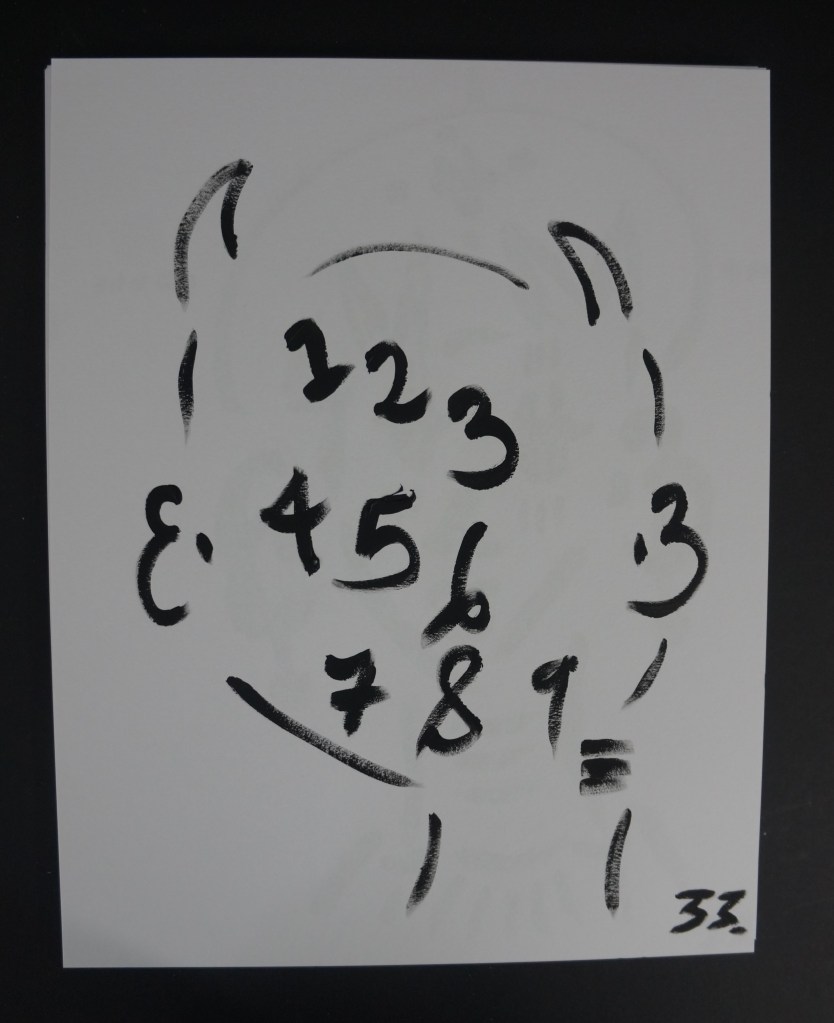 1 2 3
4 5 6
7 8 9 =
33.